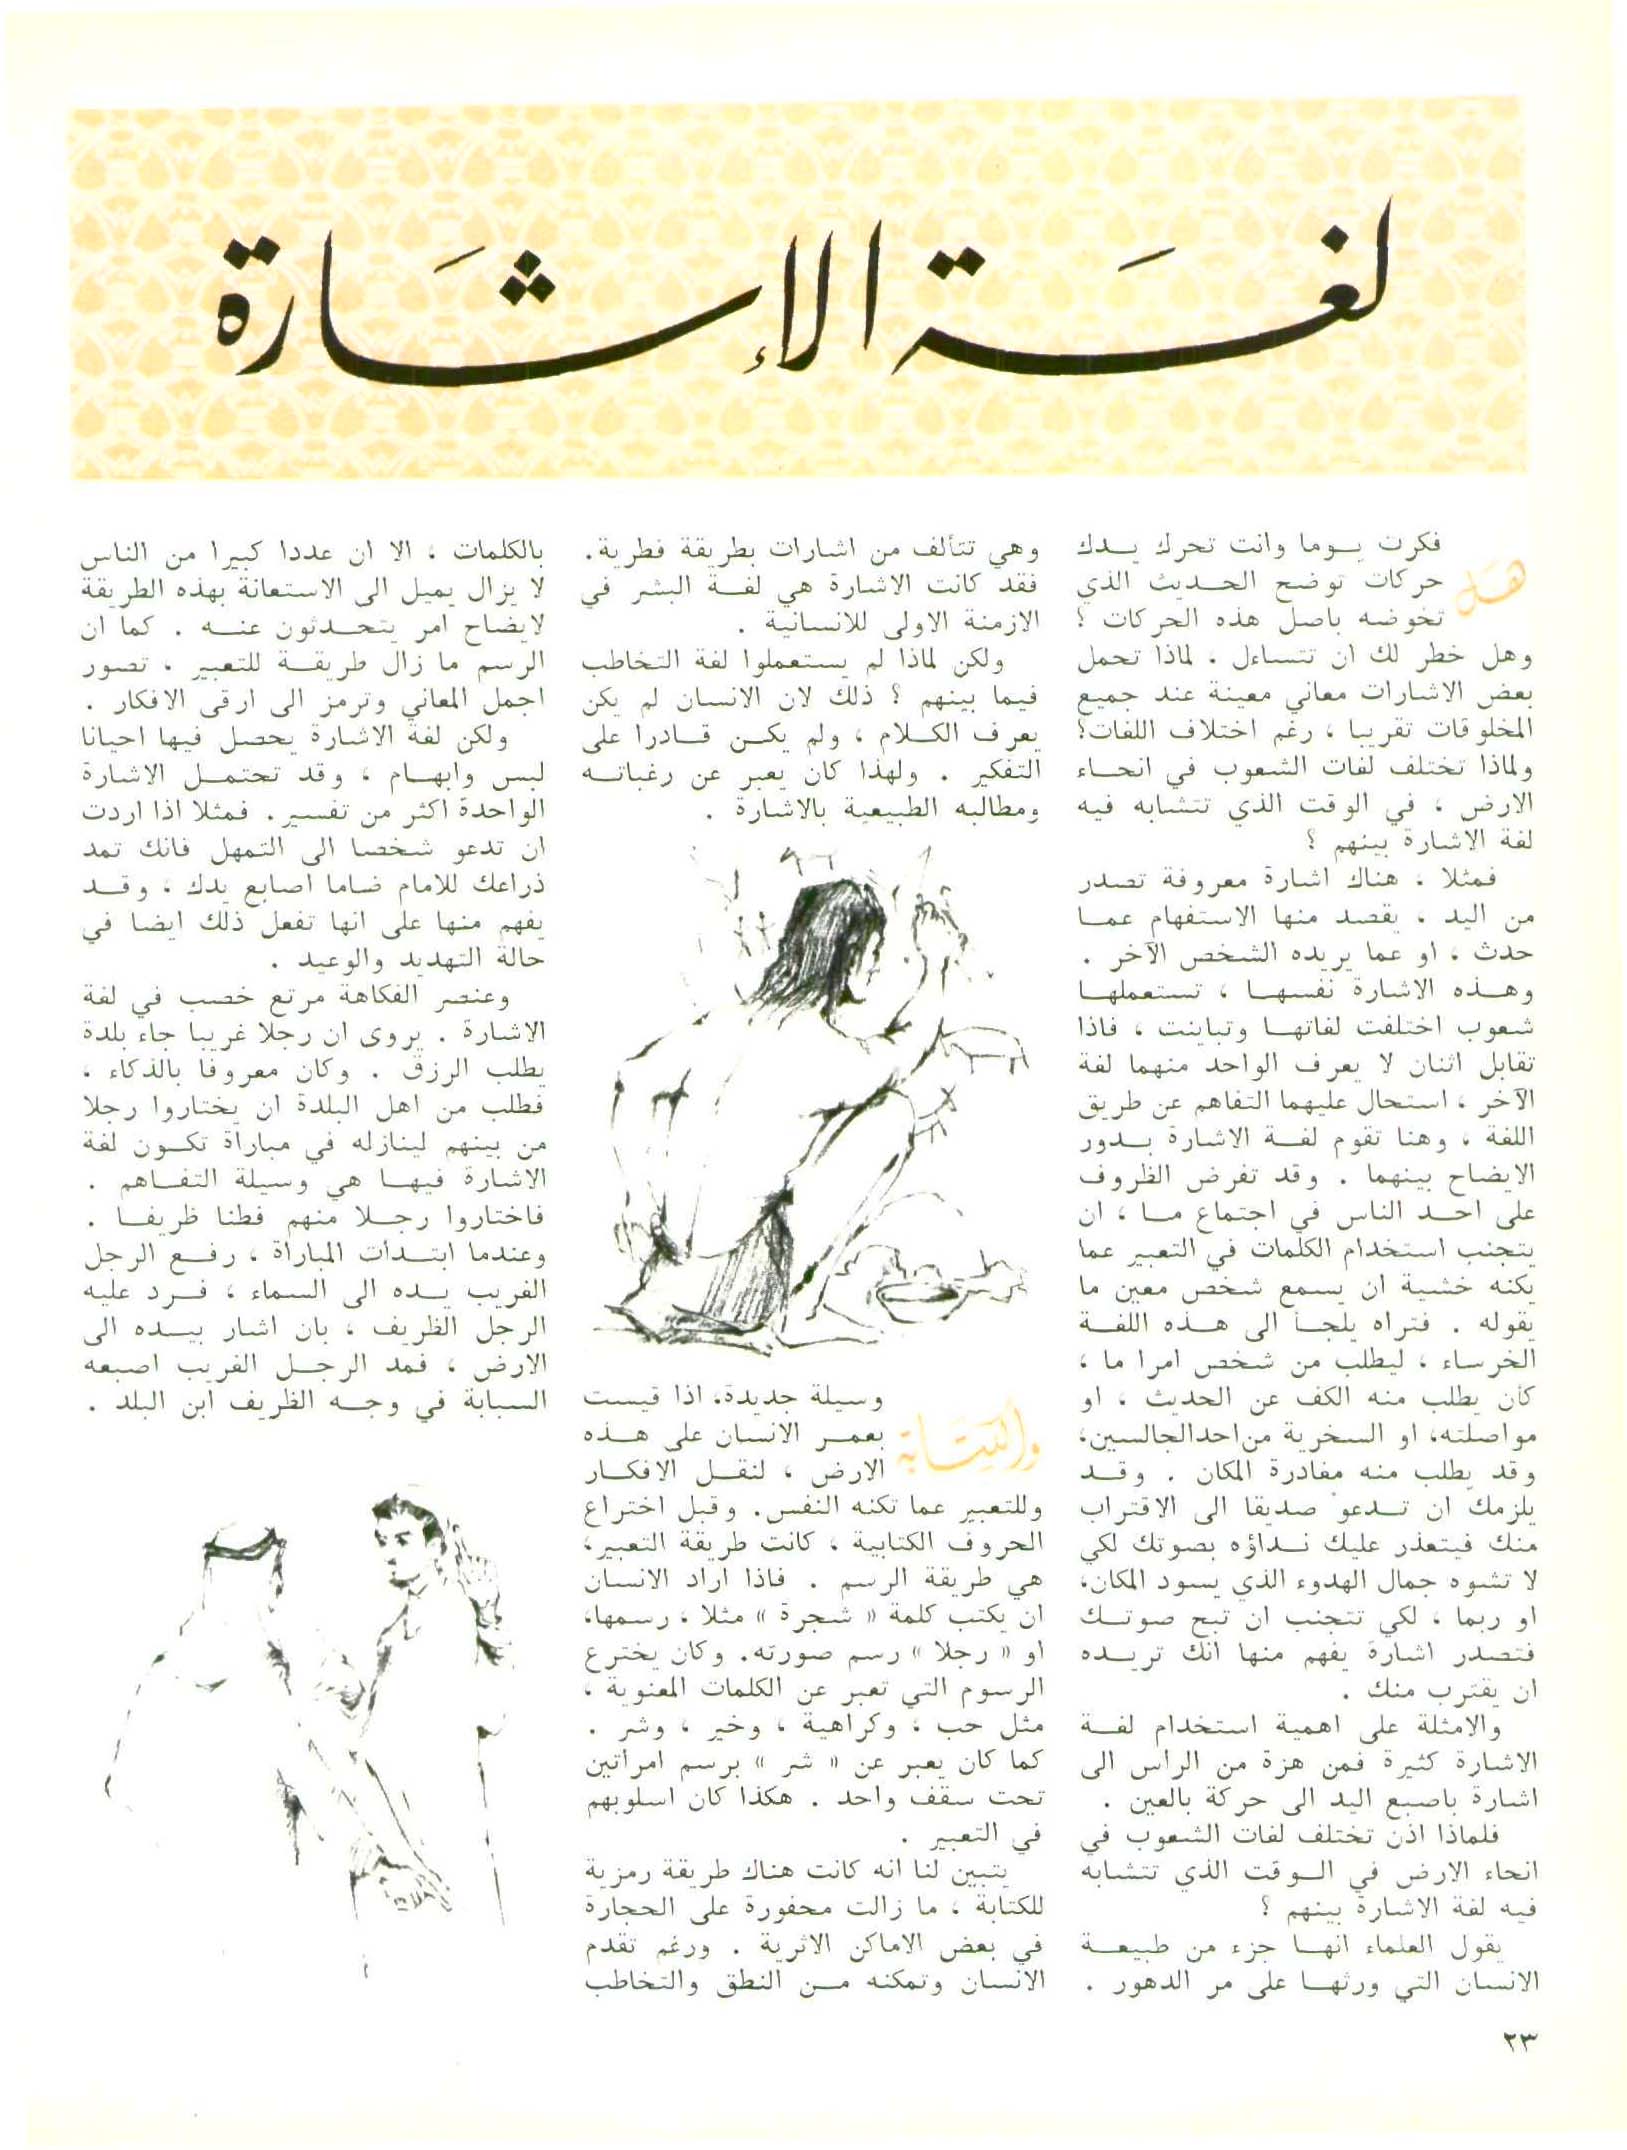 لغة الإشارة
هل فكرت يوما وانت تحرك يدك
حركات توضح الحديث الذي
تخوضه باصل هذه الحركات ؟
وهل خطر لك ان تتساءل ، لماذا تحمل
بعض الاشارات معاني معينة عند جميع
المخلوقات تقريبا ، رغم اختلاف اللغات؟
ولماذا تختلف لغات الشعوب في انحاء
الارض ، في الوقت الذي تتشابه فيه
لغة الاشارة بينهم ؟
فمثلا ، هناك اشارة معروفة تصدر
من اليد ، يقصد منها الاستفهام عما
حدث ، او عما يريده الشخص الآخر .
وهذه الاشارة نفسها ، تستعملها
شعوب اختلفت لغاتها وتباينت ، فاذا
تقابل اثنان لا يعرف الواحد منهما لغة
الآخر ، استحال عليهما التفاهم عن طريق
اللغة ، وهنا تقوم لغة الاشارة بدور
الايضاح بينهما . وقد تفرض الظروف
على احد الناس في اجتماع ما ، ان
يتجنب استخدام الكلمات في التعبير عما
يكنه خشية ان يسمع شخص معين ما
يقوله . فتراه يلجأ الى هذه اللغة
الخرساء ، ليطلب من شخص امرا ما ،
كان يطلب منه الكف عن الحديث ، او
مواصلته، او السخرية من احد الجالسين،
وقد يطلب منه مغادرة المكان . وقد
يلزمك ان تدعو صديقا الى الاقتراب
منك فيتعذر عليك نداؤه بصوتك لكي
لا تشوه جمال الهدوء الذي يسود المكان،
او ربما ، لكي تتجنب ان تبح صوتك
فتصدر اشارة يفهم منها انك تريده
ان يقترب منك .
والامثلة على اهمية استخدام لغة
الاشارة كثيرة فمن هزة من الراس الى
اشارة باصبع اليد الى حركة بالعين .
فلماذا اذن تختلف لغات الشعوب في
انحاء الارض في الوقت الذي تتشابه
فيه لغة الاشارة بينهم ؟
يقول العلماء انها جزء من طبيعة
الانسان التي ورثها على مر الدهور .
وهي تتألف من اشارات بطريقة فطرية.
فقد كانت الاشارة هي لغة البشر في
الازمنة الاولى للانسانية .
ولكن لماذا لم يستعملوا لغة التخاطب
فيما بينهم ؟ ذلك لان الانسان لم يكن
يعرف الكلام ، ولم يكن قادرا على
التفكير . ولهذا كان يعبر عن رغباته
ومطالبه الطبيعية بالاشارة .
والكتابة وسيلة جديدة، اذا قيست
بعمر الانسان على هذه
الارض ، لنقل الافكار
وللتعبير عما تكنه النفس. وقبل اختراع
الحروف الكتابية ، كانت طريقة التعبير،
هي طريقة الرسم . فاذا اراد الانسان
ان يكتب كلمة « شجرة » مثلا ، رسمها،
او « رجلا » رسم صورته. وكان يخترع
الرسوم التي تعبر عن الكلمات المعنوية ،
مثل حب ، وكراهية ، وخير ، وشر .
كما كان يعبر عن « شر » برسم امراتين
تحت سقف واحد . هكذا كان اسلوبهم
في التعبير .
يتبين لنا انه كانت هناك طريقة رمزية
للكتابة ، ما زالت محفورة على الحجارة
في بعض الاماكن الاثرية . ورغم تقدم
الانسان وتمكنه من النطق والتخاطب
بالكلمات ، الا ان عددا كبيرا من الناس
لا يزال يميل الى الاستعانة بهذه الطريقة
لايضاح امر يتحدثون عنه . كما ان
الرسم ما زال طريقة للتعبير ، تصور
اجمل المعاني وترمز الى ارقى الافكار .
ولكن لغة الاشارة يحصل فيها احيانا
لبس وابهام ، وقد تحتمل الاشارة
الواحدة اكثر من تفسير. فمثلا اذا اردت
ان تدعو شخصا الى التمهل فانك تمد
ذراعك للامام ضاما اصابع يدك ، وقد
يفهم منها على انها تفعل ذلك ايضا في
حالة التهديد والوعيد .
وعنصر الفكاهة مرتع خصب في لغة
الاشارة . يروى ان رجلا غريبا جاء بلدة
يطلب الرزق . وكان معروفا بالذكاء ،
فطلب من اهل البلدة ان يختاروا رجلا
من بينهم لينازله في مباراة تكون لغة
الاشارة فيها هي وسيلة التفاهم .
فاختاروا رجلا منهم فطنا ظريفا .
وعندما ابتدأت المباراة ، رفع الرجل
الغريب يده الى السماء ، فرد عليه
الرجل الظريف ، بان اشار بيده الى
الارض ، فمد الرجل الغريب اصبعه
السبابة في وجه الظريف ابن البلد .
٢٣